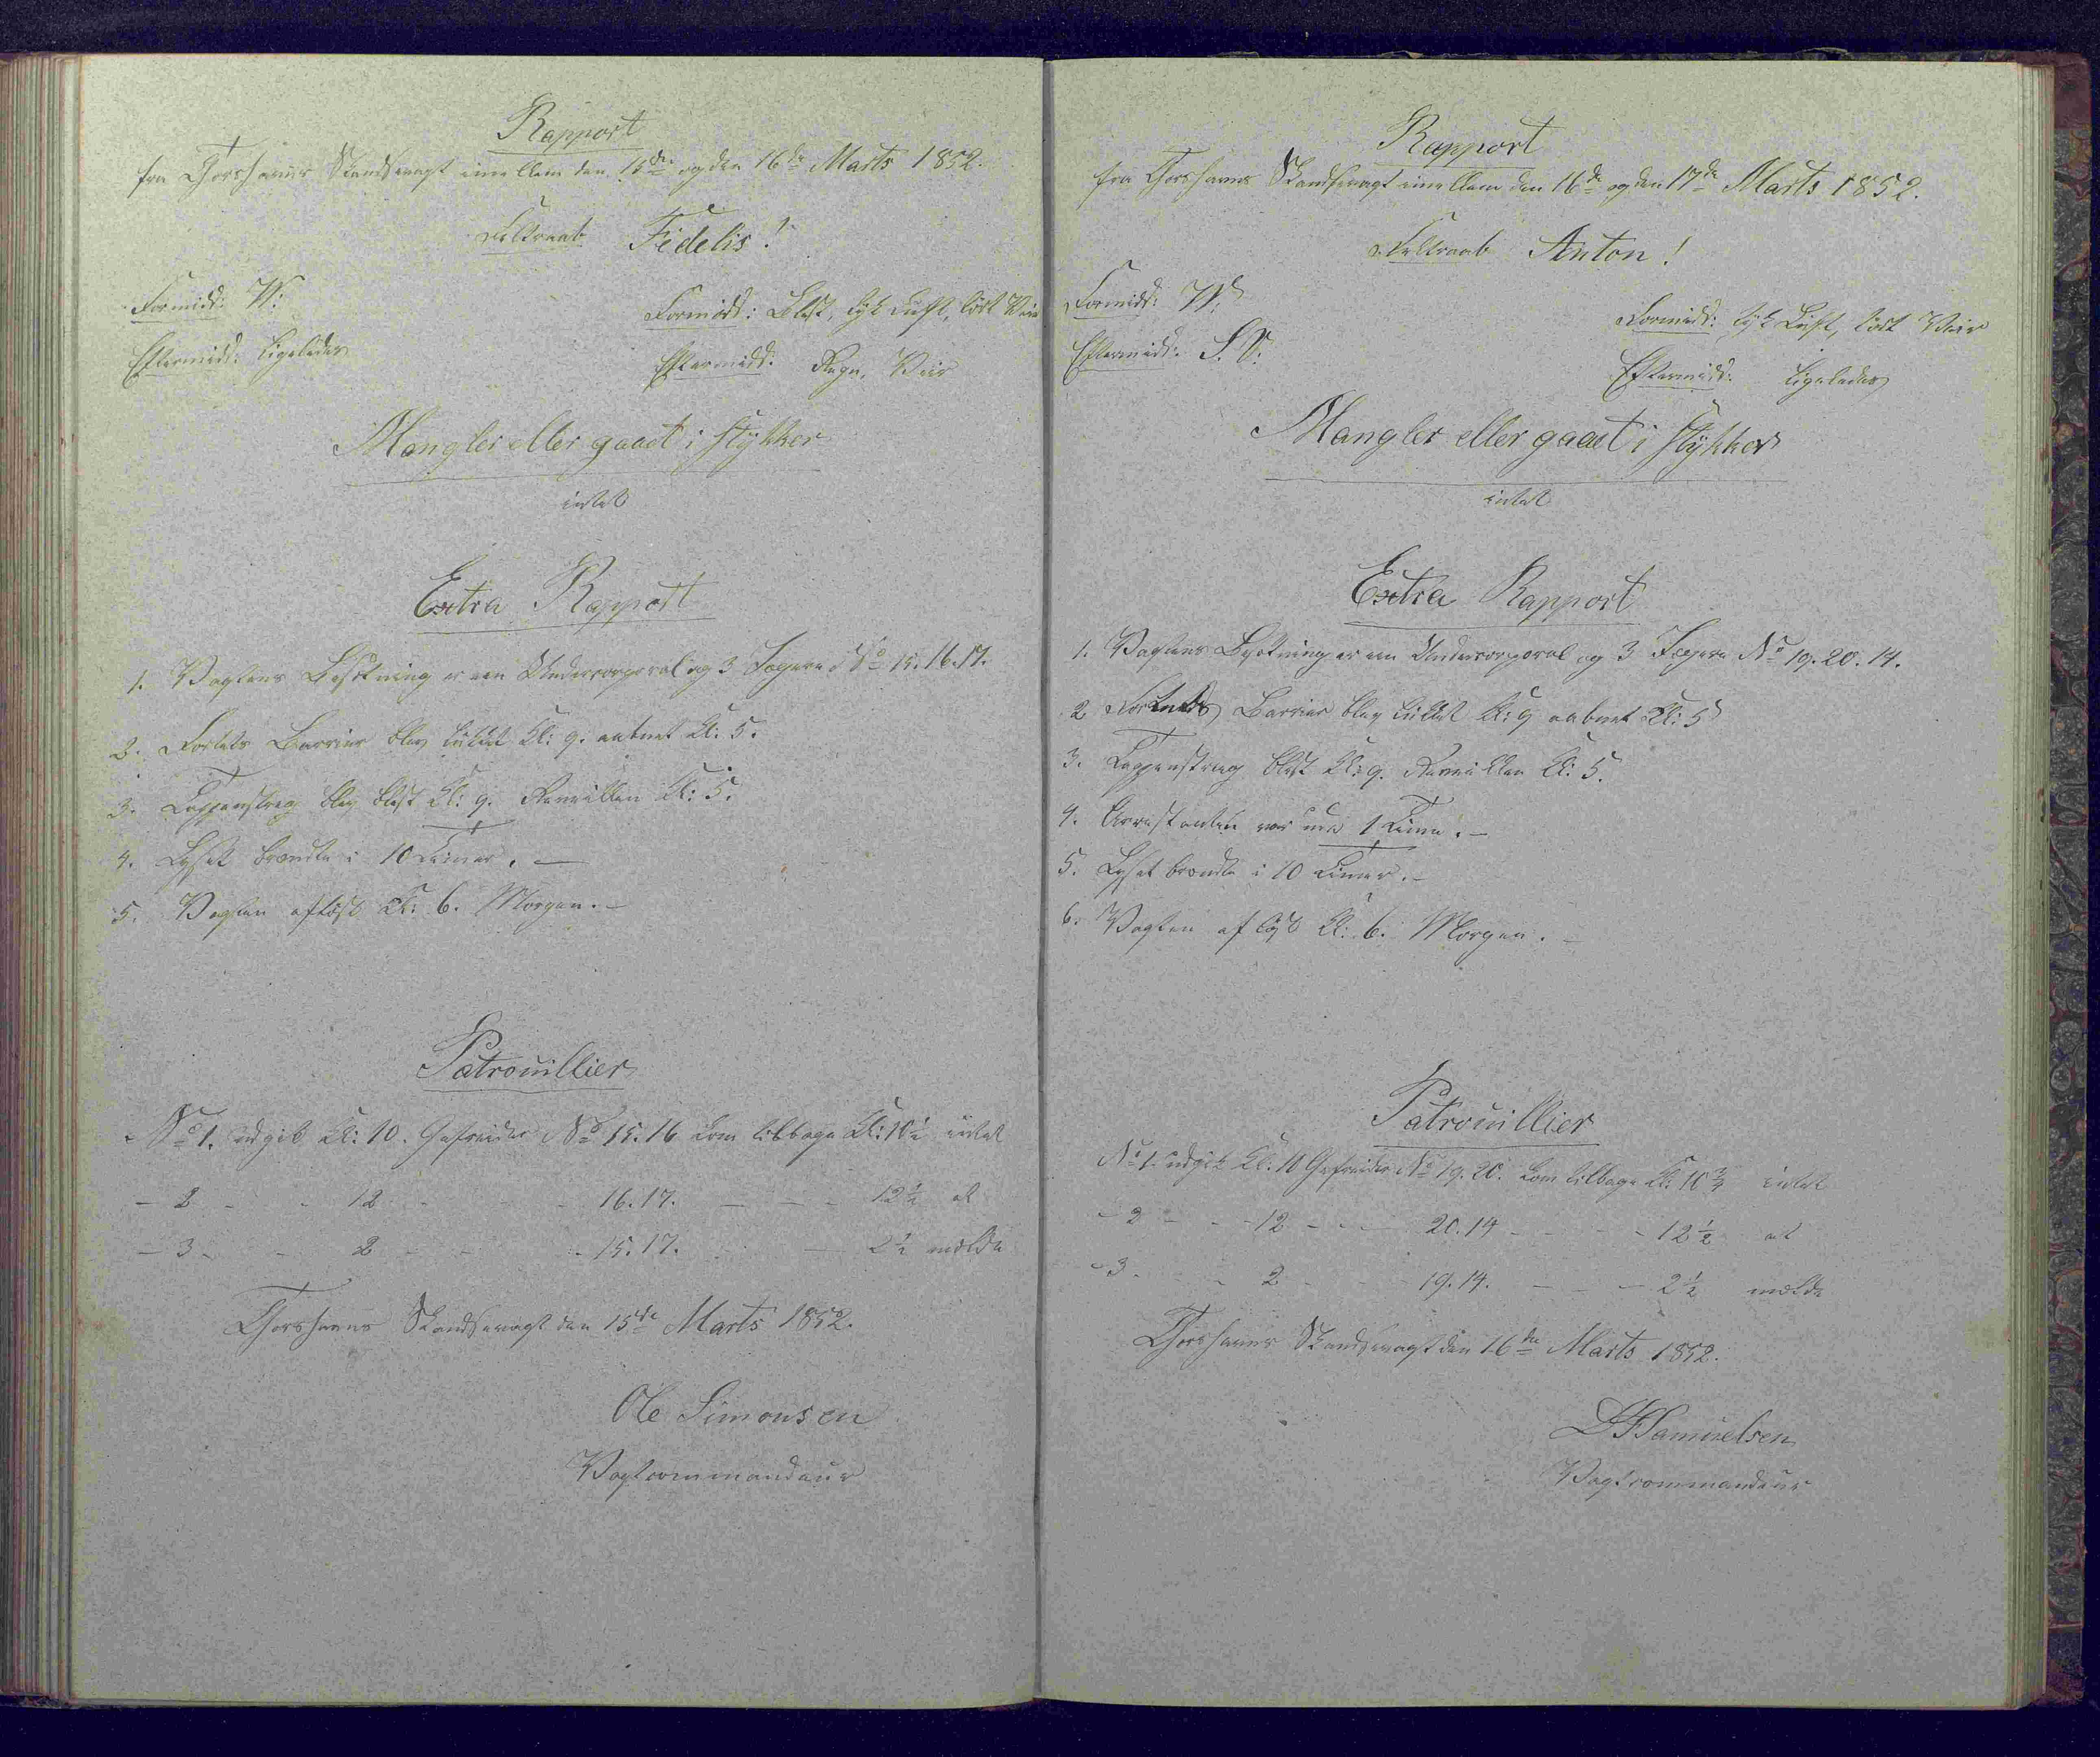 Rapport
fra Thorshavns Skandsevagt imellem den 15de og den 16de Marts 1852.
Feltraab Fidelis!
Formidd: V:
Eftermidd: ligeledes
Formidd: Blæst, tyk Luft, tört Veir
Eftermidd: Regn, Veir
Mangler eller gaaet i stykker
intet
Extra Rapport
1. Vagtens Besætning er een Undercorporal og 3 Jægere No 15. 16. 17.
2. Fortets Barriere blev lukket Kl: 9. aabnet Kl: 5.
3. Tappenstreg blev blæst Kl: 9. Reveillen Kl: 5.
4. Lyset brændte i 10 Timer. —
5. Vagten aflöst Kl: 6. Morgen. —
Patrouillier
No 1. udgik Kl: 10. Gefreider No 15. 16 kom tilbage Kl: 10½ intet
— 2 - - 12 - - - 16. 17. — - - 12½ at
— 3 - - 2 - - - 15. 17. - — 2½ melde
Thorshavns Skandsevagt den 15de Marts 1852.
Ole Simonsen
Vagtcommandeur
Rapport
fra Thorshavns Skandsevagt imellem den 16de og den 17de Marts 1852.
Feltraab Anton!
Formidd: V:
Eftermidd: S.V:
Formidd: tyk Luft, tört Veir
Eftermidd: ligeledes
Mangler eller gaaet i stykker
intet
Extra Rapport
1. Vagtens Besætning er een Undercorporal og 3 Jægere No 19. 20. 14.
2 Fortets Barriere blev lukket Kl: 9 aabnet Kl: 5
3. Tappenstreg blæst Kl: 9. Reveillen Kl: 5.
4. Arrestanten var ude 1 Time. —
5. Lyset brændte i 10 Timer. —
6. Vagten aflöst Kl: 6. Morgen. —
Patrouillier
No 1. udgik Kl: 10 Gefreider No 19. 20. kom tilbage Kl: 10¾ intet
— 2 — - - 12 - - — 20. 14 - - - - 12½ at
— 3. - - 2 - - - 19. 14. — - — 2½ melde
Thorshavns Skandsevagt den 16de Marts 1852.
Samuelsen
Vagtcommandeur